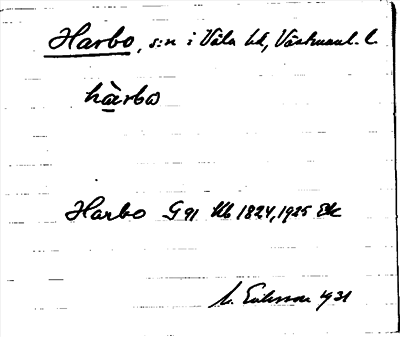 Harbo, s:n i Våla hd, Västmanl. l.
hàrbo
Harbo G 91 Kb 1824, 1925 Ek
M. Eriksson 1931